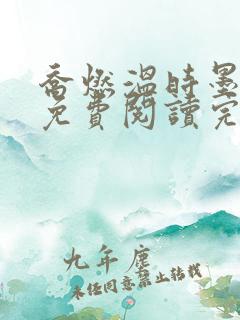 喬燃溫時墨
免費閱讀完
九年塵
未经同意禁止转载